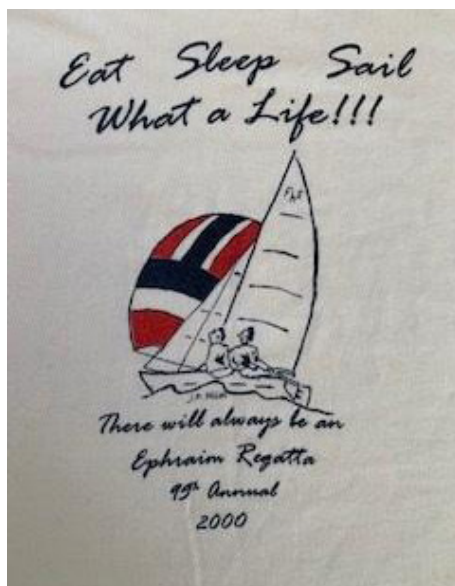 Eat Sleep Sail
What a Life!!!
There will always be an
Ephraim Regatta
95th Annual
2000